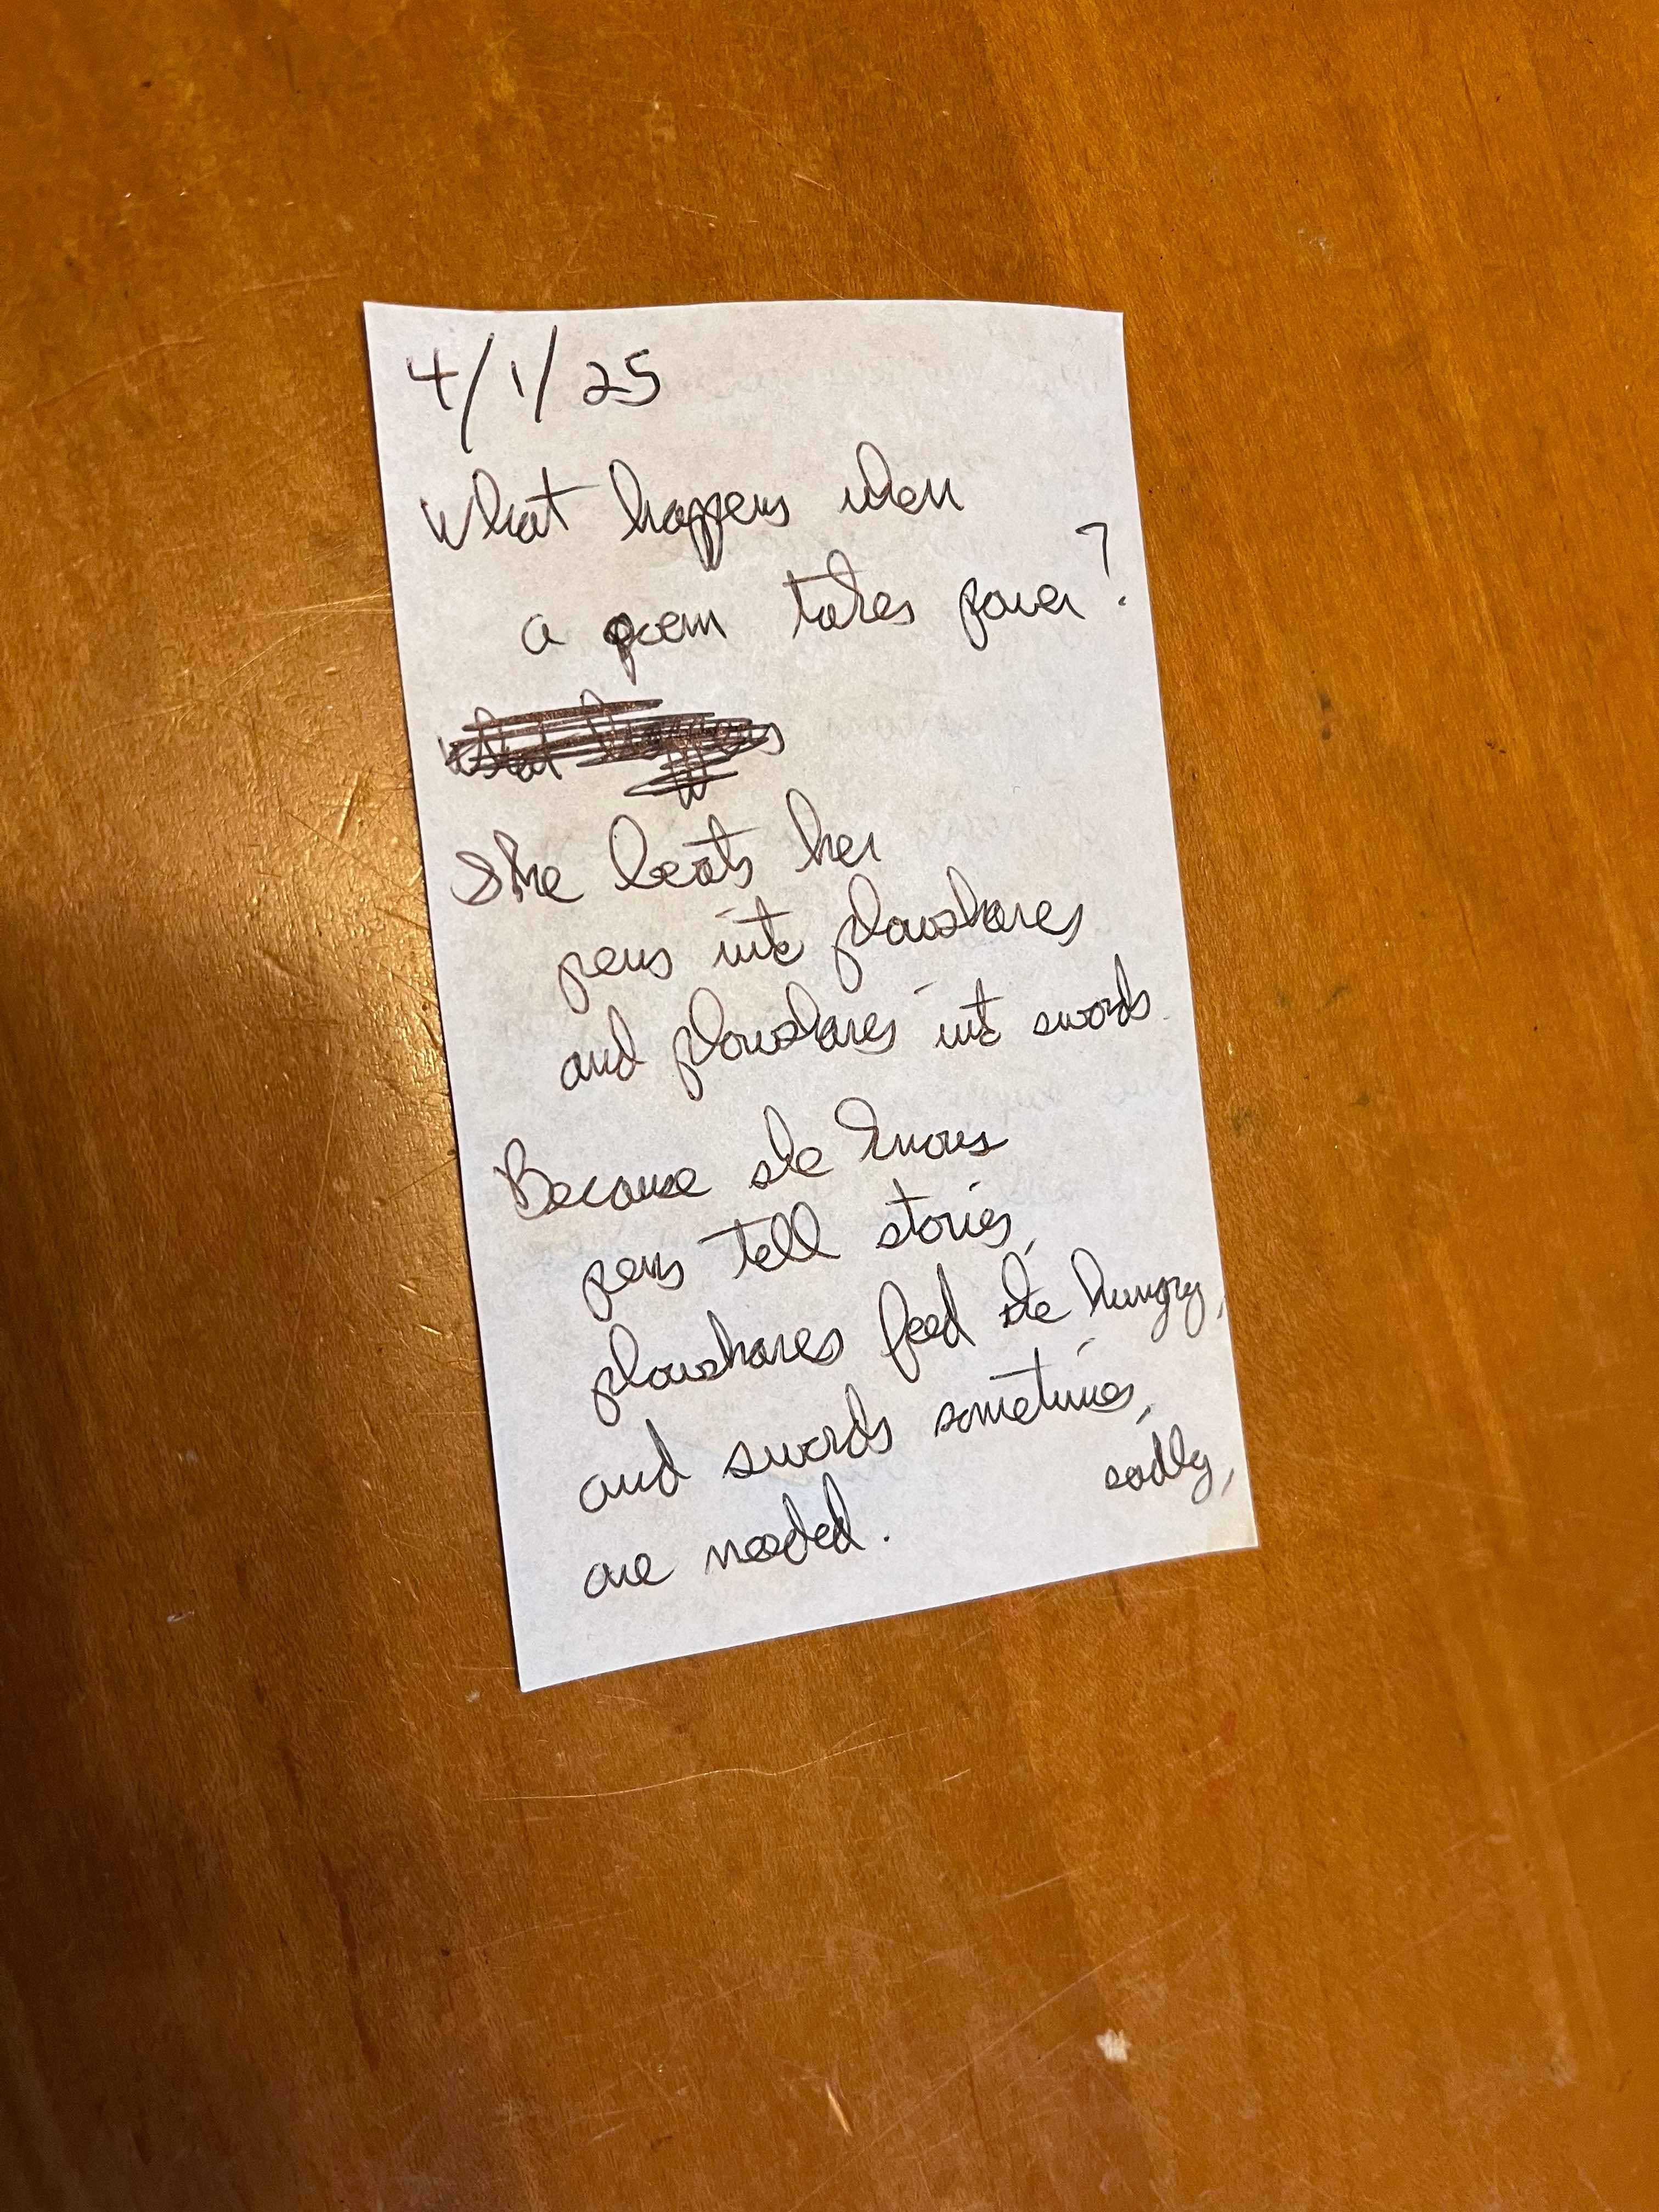 4/1/25
What happens when
a poem takes power?
She beats her
pens into plowshares
and plowshares into swords.
Because she knows
pens tell stories,
plowshares feed the hungry,
and swords sometimes,
sadly,
are needed.